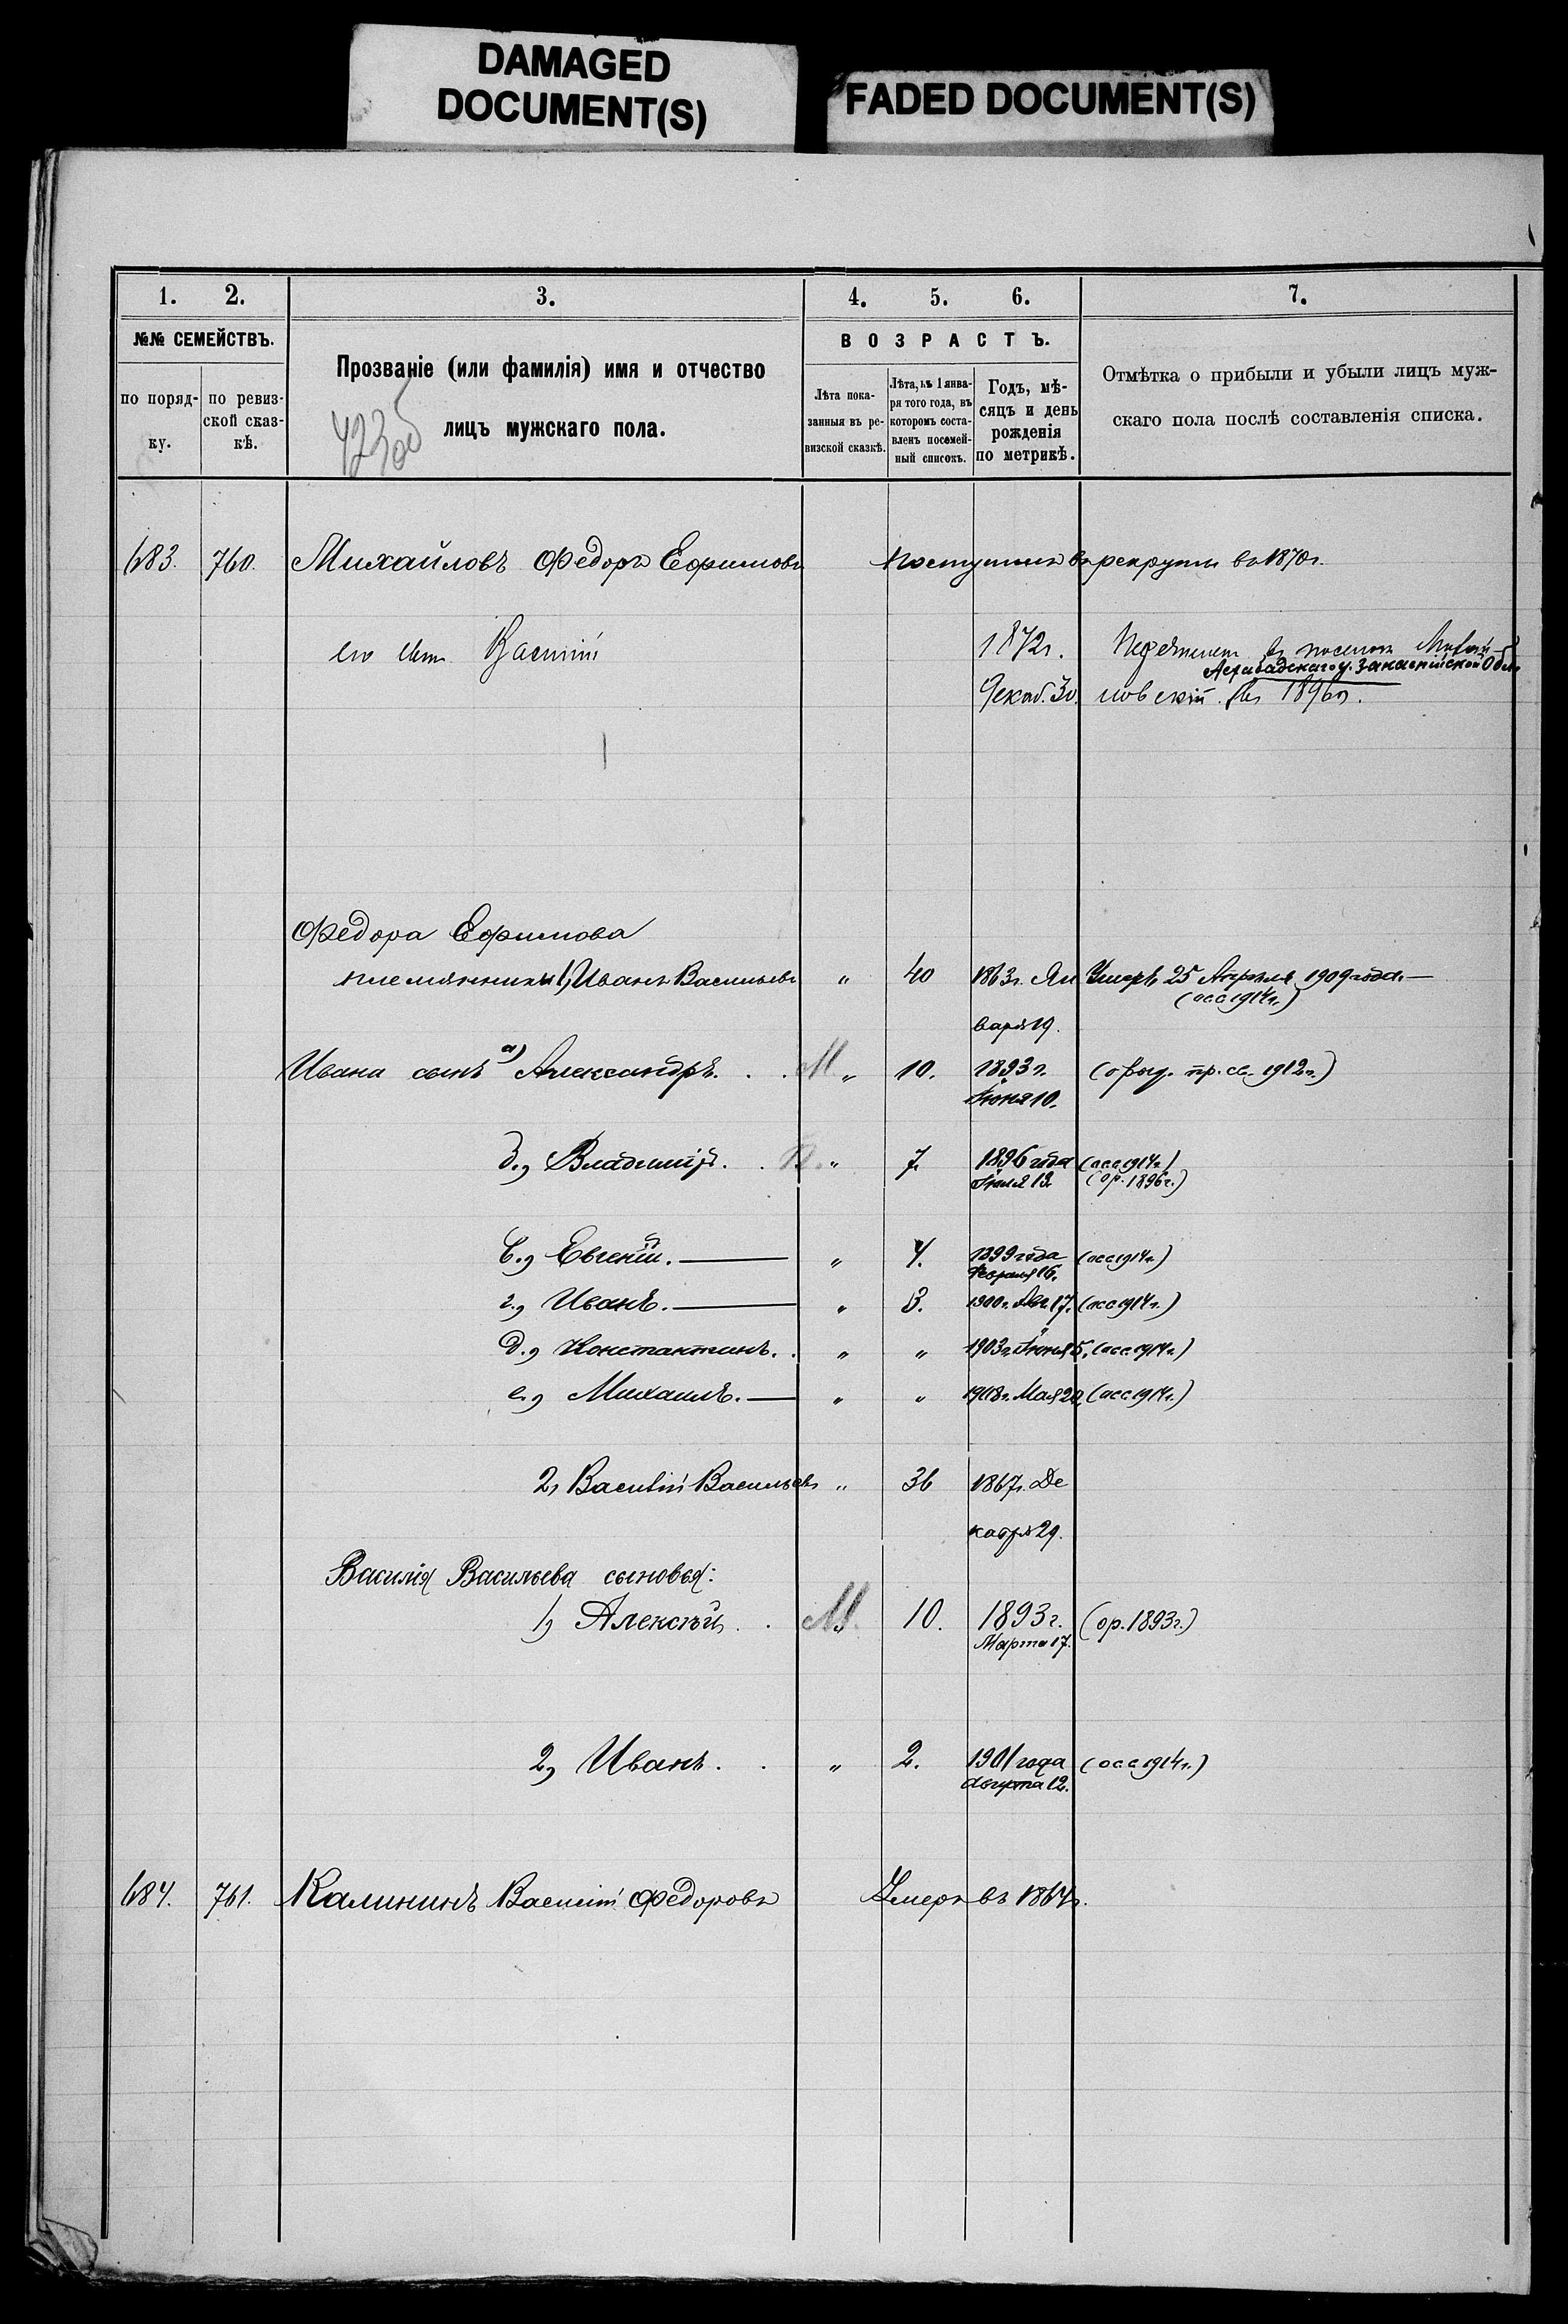 DAMAGED
DOCUMENT(S)
FADED DOCUMENT(S)
1. 2. 3. 4. 5. 6. 7.
№№ СЕМЕЙСТВЪ.
по поряд-
ку.
по ревиз-
ской сказ-
кѣ.
Прозваніе (или фамилія) имя и отчество
лицъ мужскаго пола.
423об
ВОЗРАСТЪ.
Лѣта пока-
занныя въ ре-
визской сказкѣ.
Лѣта, къ 1 янва-
ря того года, въ
которомъ соста-
вленъ посемей-
ный списокъ.
Годъ, мѣ-
сяцъ и день
рожденія
по метрикѣ.
Отмѣтка о прибыли и убыли лицъ муж-
скаго пола послѣ составленія списка.
683. 760. Михайловъ Федоръ Ефимовъ Поступилъ въ рекруты въ 1870г.
его сынъ Василій 1872г. въ поселокъ
Асхабадскаго у. Закаспійской Обл.
Декаб. 30. новскій. въ 1896г.
Федора Ефимова
племянники 1, Иванъ Васильевъ " 40 1863г. Ян Умеръ 25 Апрѣля 1909 года.—
(асс 1914г.)
варя 19.
Ивана сынъ а) Александръ. . . М " 10. 1893г. пр. св. 1912г.)
Іюня 10.
б., Владиміръ. . " 7. 1896 года (асс 1914г.)
Іюля 13. (ор. 1896г.)
в., Евгеній. — " 4. 1899 года (асс 1914г.)
Февраля 16.
г., Иванъ. — " 3. 1900г. Авг. 17. (асс 1914г.)
д., Константинъ. . " " 1903г. Іюня 5. (асс. 1914г.)
е., Михаилъ. — " " 1908г. Мая 20. (асс. 1914г.)
2, Василій Васильевъ " 36 1867г. Де
кабря 29.
Василія Васильева сыновья:
1, Алексѣй. . М " 10. 1893г. (ор. 1893г.)
Марта 17.
2, Иванъ. . " 2. 1901 года (асс 1914г.)
Августа 12.
684. 761. Калининъ Василій Федоровъ Умеръ въ 1864г.